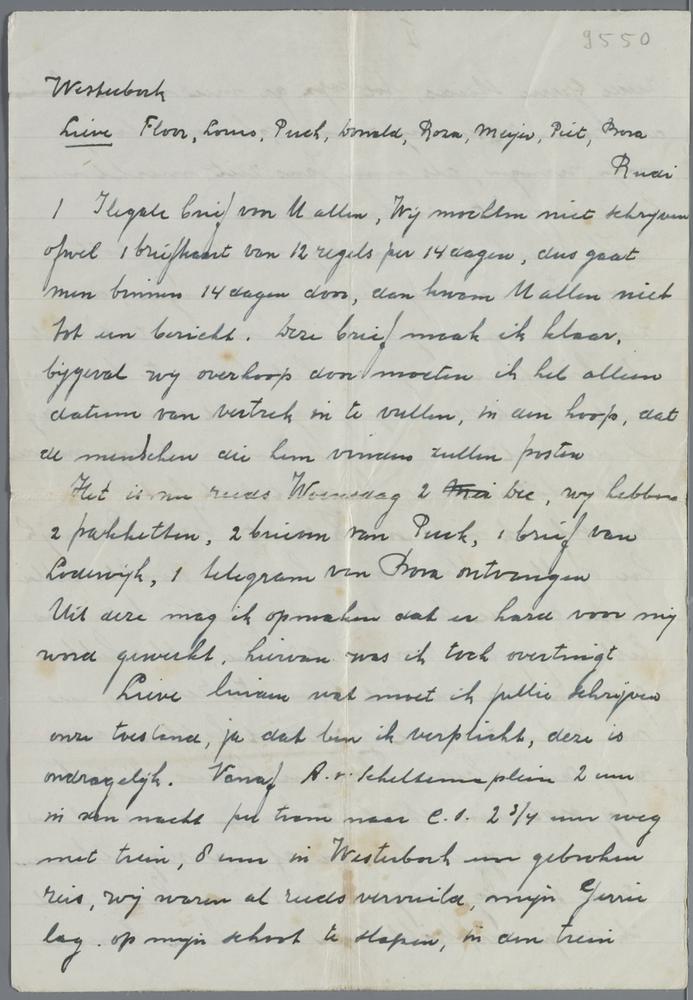 9550
Westerbork
Lieve Floor, Louis, Puck, Donald, Roza, Meijer, Piet, Bora
Rudi
1 Ilegale brief voor U allen, Wij mochten niet schrijven
ofwel 1 briefkaart van 12 regels per 14 dagen, dus gaat
men binnen 14 dagen door, dan kwam U allen niet
tot een bericht. Deze brief maak ik klaar,
bijgeval wij overhoop door moeten ik heb alleen
datum van vertrek in te vullen, in den hoop, dat
de menschen die hem vinden zullen posten
Het is nu reeds Woensdag 2 Dec, wij hebben
2 pakketten, 2 brieven van Puck, 1 brief van
Lodewijk, 1 telegram van Bora ontvangen
Uit deze mag ik opmaken dat er hard voor mij
word gewerkt, hiervan was ik toch overtuigt
Lieve lievien wat moet ik jullie schrijven
onze toestand, ja dat ben ik verplicht, deze is
ondragelijk. Vanaf A. v. Scheltemaplein 2 uur
in den nacht per tram naar C.S. 2 3/4 uur weg
met trein, 8 uur in Westerbork een gebroken
reis, wij waren al reeds vervuild, mijn Gerrie
lag op mijn schoot te slapen, in den trein